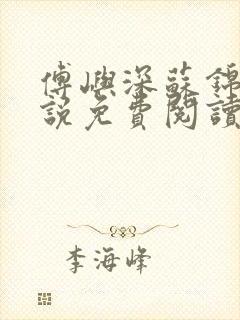 傅嶼深蘇錦
說免費閱讀
李海峰